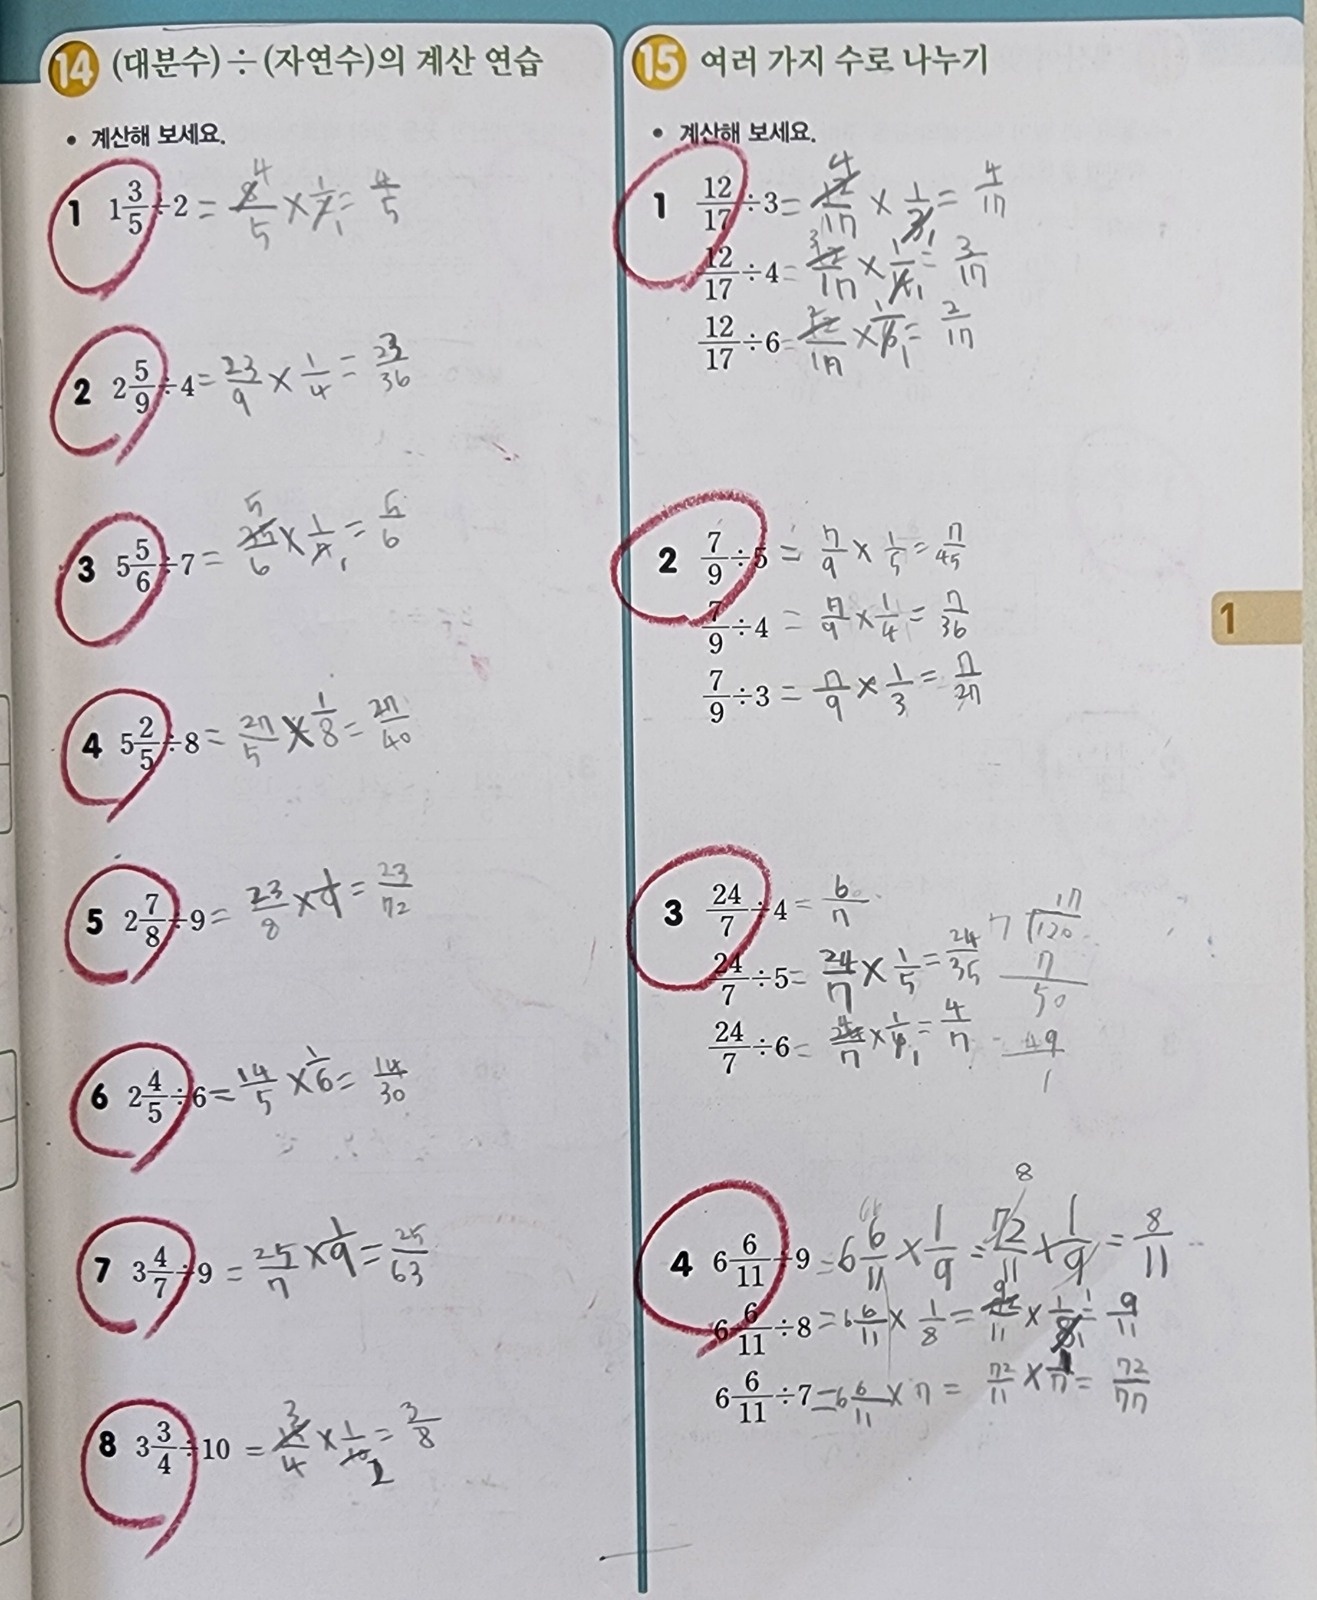 14 (대분수)÷(자연수)의 계산 연습
• 계산해 보세요.
1 1 3/5 ÷2 = 8/5 4 × 1/2 1 = 4/5
2 2 5/9 ÷4 = 23/9 × 1/4 = 23/36
3 5 5/6 ÷7 = 35/6 5 × 1/7 1 = 5/6
4 5 2/5 ÷8 = 27/5 × 1/8 = 27/40
5 2 7/8 ÷9 = 23/8 × 1/9 = 23/72
6 2 4/5 ÷6 = 14/5 × 1/6 = 14/30
7 3 4/7 ÷9 = 25/7 × 1/9 = 25/63
8 3 3/4 ÷10 = 15/4 3 × 1/10 2 = 3/8
15 여러 가지 수로 나누기
• 계산해 보세요.
1 12/17 ÷3 = 12/17 4 × 1/3 1 = 4/17
12/17 ÷4 = 12/17 3 × 1/4 1 = 3/17
12/17 ÷6 = 12/17 2 × 1/6 1 = 2/17
2 7/9 ÷5 = 7/9 × 1/5 = 7/45
7/9 ÷4 = 7/9 × 1/4 = 7/36
7/9 ÷3 = 7/9 × 1/3 = 7/27
3 24/7 ÷4 = 6/7
24/7 ÷5 = 24/7 × 1/5 = 24/35
24/7 ÷6 = 24/7 4 × 1/6 1 = 4/7
17
7 120
7
50
49
1
4 6 6/11 ÷9 = 6 6/11 × 1/9 = 72/11 8 × 1/9 = 8/11
6 6/11 ÷8 = 6 6/11 × 1/8 = 72/11 9 × 1/8 1 = 9/11
6 6/11 ÷7 = 6 6/11 × 7 = 72/11 × 1/7 = 72/77
1